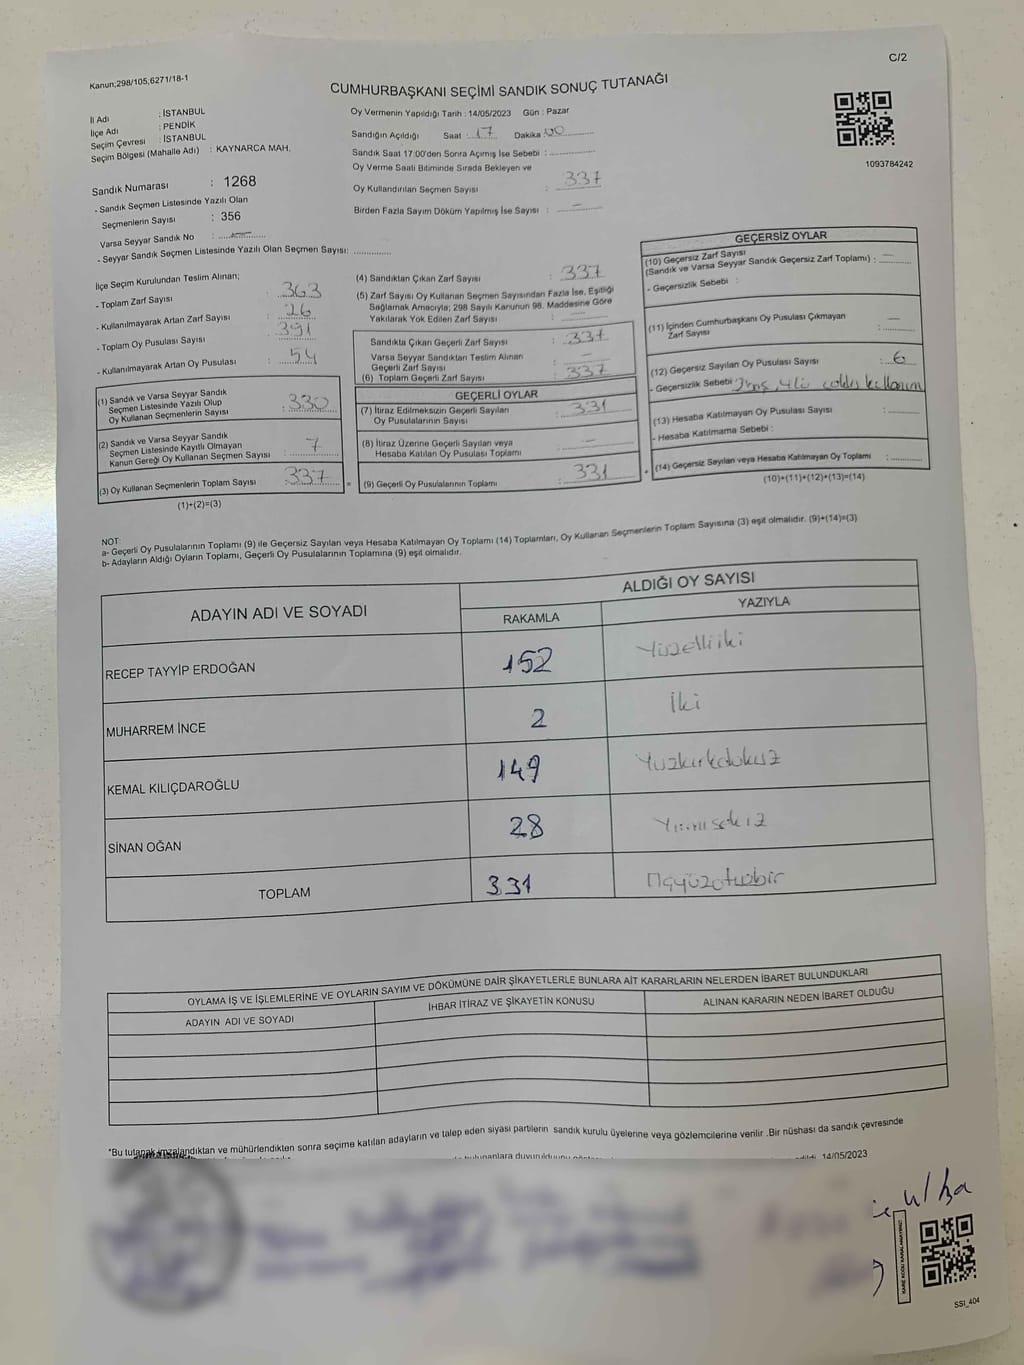 C/2
Kanun;298/105,6271/18-1
CUMHURBAŞKANI SEÇİMİ SANDIK SONUÇ TUTANAĞI
1093784242
İl Adı : İSTANBUL
İlçe Adı : PENDİK
Seçim Çevresi : İSTANBUL
Seçim Bölgesi (Mahalle Adı) : KAYNARCA MAH.
Sandık Numarası : 1268
- Sandık Seçmen Listesinde Yazılı Olan
Seçmenlerin Sayısı : 356
Varsa Seyyar Sandık No :
- Seyyar Sandık Seçmen Listesinde Yazılı Olan Seçmen Sayısı:
Oy Vermenin Yapıldığı Tarih : 14/05/2023 Gün : Pazar
Sandığın Açıldığı Saat : 17 Dakika : 00
Sandık Saat 17:00'den Sonra Açımış İse Sebebi :
Oy Verme Saati Bitiminde Sırada Bekleyen ve
Oy Kullandırılan Seçmen Sayısı : 337
Birden Fazla Sayım Döküm Yapılmış İse Sayısı : -
İlçe Seçim Kurulundan Teslim Alınan;
- Toplam Zarf Sayısı : 363
- Kullanılmayarak Artan Zarf Sayısı : 26
- Toplam Oy Pusulası Sayısı : 391
- Kullanılmayarak Artan Oy Pusulası : 54
(1) Sandık ve Varsa Seyyar Sandık
Seçmen Listesinde Yazılı Olup
Oy Kullanan Seçmenlerin Sayısı : 330
(2) Sandık ve Varsa Seyyar Sandık
Seçmen Listesinde Kayıtlı Olmayan
Kanun Gereği Oy Kullanan Seçmen Sayısı : 7
(3) Oy Kullanan Seçmenlerin Toplam Sayısı : 337
(1)+(2)=(3)
(4) Sandıktan Çıkan Zarf Sayısı : 337
(5) Zarf Sayısı Oy Kullanan Seçmen Sayısından Fazla İse, Eşitliği
Sağlamak Amacıyla; 298 Sayılı Kanunun 98. Maddesine Göre
Yakılarak Yok Edilen Zarf Sayısı : -
Sandıkta Çıkan Geçerli Zarf Sayısı : 337
Varsa Seyyar Sandıktan Teslim Alınan
Geçerli Zarf Sayısı : -
(6) Toplam Geçerli Zarf Sayısı : 337
GEÇERLİ OYLAR
(7) İtiraz Edilmeksizin Geçerli Sayılan
Oy Pusulalarının Sayısı : 331
(8) İtiraz Üzerine Geçerli Sayılan veya
Hesaba Katılan Oy Pusulası Toplamı : -
= (9) Geçerli Oy Pusulalarının Toplamı : 331 +
GEÇERSİZ OYLAR
(10) Geçersiz Zarf Sayısı
(Sandık ve Varsa Seyyar Sandık Geçersiz Zarf Toplamı) : -
- Geçersizlik Sebebi :
(11) İçinden Cumhurbaşkanı Oy Pusulası Çıkmayan
Zarf Sayısı : -
(12) Geçersiz Sayılan Oy Pusulası Sayısı : 6
- Geçersizlik Sebebi :
(13) Hesaba Katılmayan Oy Pusulası Sayısı :
- Hesaba Katılmama Sebebi :
(14) Geçersiz Sayılan veya Hesaba Katılmayan Oy Toplamı :
(10)+(11)+(12)+(13)=(14)
NOT:
a- Geçerli Oy Pusulalarının Toplamı (9) ile Geçersiz Sayılan veya Hesaba Katılmayan Oy Toplamı (14) Toplamları, Oy Kullanan Seçmenlerin Toplam Sayısına (3) eşit olmalıdır. (9)+(14)=(3)
b- Adayların Aldığı Oyların Toplamı, Geçerli Oy Pusulalarının Toplamına (9) eşit olmalıdır.
ADAYIN ADI VE SOYADI
ALDIĞI OY SAYISI
RAKAMLA YAZIYLA
RECEP TAYYİP ERDOĞAN 152 Yüzelliiki
MUHARREM İNCE 2 İki
KEMAL KILIÇDAROĞLU 149 Yüzkırkdokuz
SİNAN OĞAN 28 Yirmisekiz
TOPLAM 331 Üçyüzotuzbir
OYLAMA İŞ VE İŞLEMLERİNE VE OYLARIN SAYIM VE DÖKÜMÜNE DAİR ŞİKAYETLERLE BUNLARA AİT KARARLARIN NELERDEN İBARET BULUNDUKLARI
ADAYIN ADI VE SOYADI İHBAR İTİRAZ VE ŞİKAYETİN KONUSU ALINAN KARARIN NEDEN İBARET OLDUĞU
*Bu tutanak imzalandıktan ve mühürlendikten sonra seçime katılan adayların ve talep eden siyasi partilerin sandık kurulu üyelerine veya gözlemcilerine verilir .Bir nüshası da sandık çevresinde
14/05/2023
SSI_404